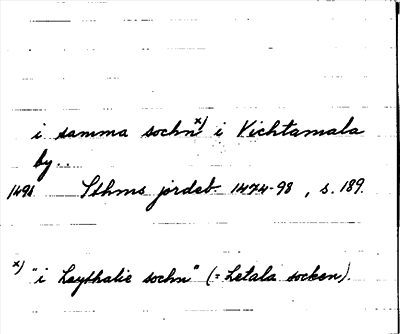 i samma sochn x) i Vichtamala
by..
1498 Sthms jordeb. 1474-98, s. 189.
x) "i Leythalie sochn" (= Letala socken).